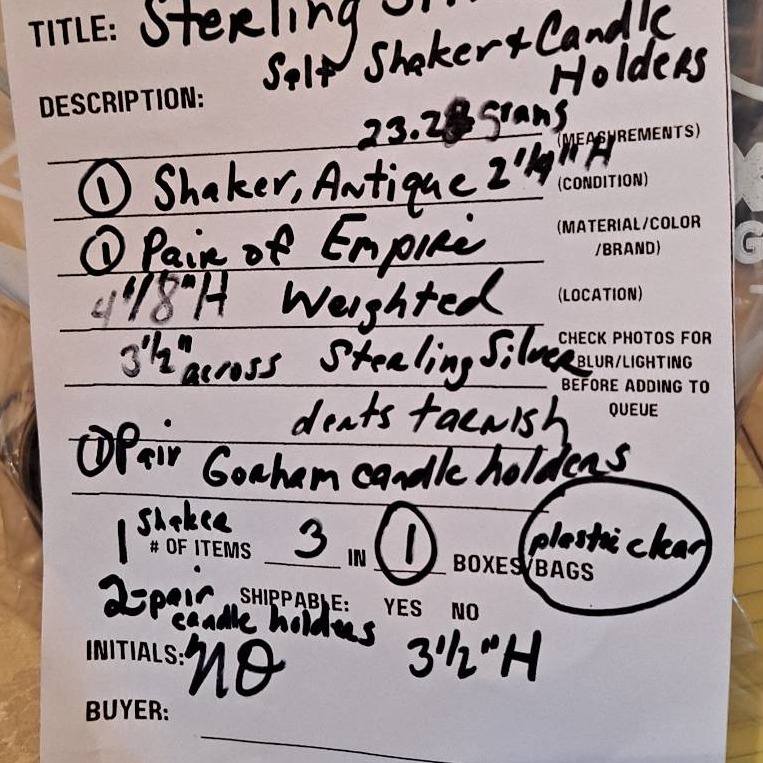 TITLE: Sterling
Salt Shaker & Candle
Holders
DESCRIPTION:
grams
(MEASUREMENTS)
① Shaker, Antique 2 1/4" H
(CONDITION)
① Pair of Empire
(MATERIAL/COLOR
/BRAND)
4 1/8" H Weighted
(LOCATION)
3 1/2" across Sterling Silver
CHECK PHOTOS FOR
BLUR/LIGHTING
BEFORE ADDING TO
QUEUE
dents tarnish
① Pair Gorham candle holders
1 Shaker
# OF ITEMS 3 IN 1 BOXES/BAGS
plastic clear
2-pair
candle holders
SHIPPABLE: YES NO
3 1/2" H
INITIALS: NO
BUYER: